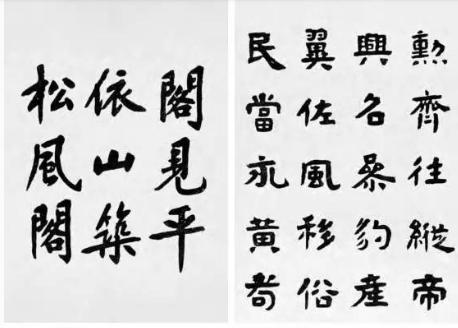 松風閣
依山築
閣見平
勲齊往縱帝
興名豹產
翼佐風移俗
民當永黃耇